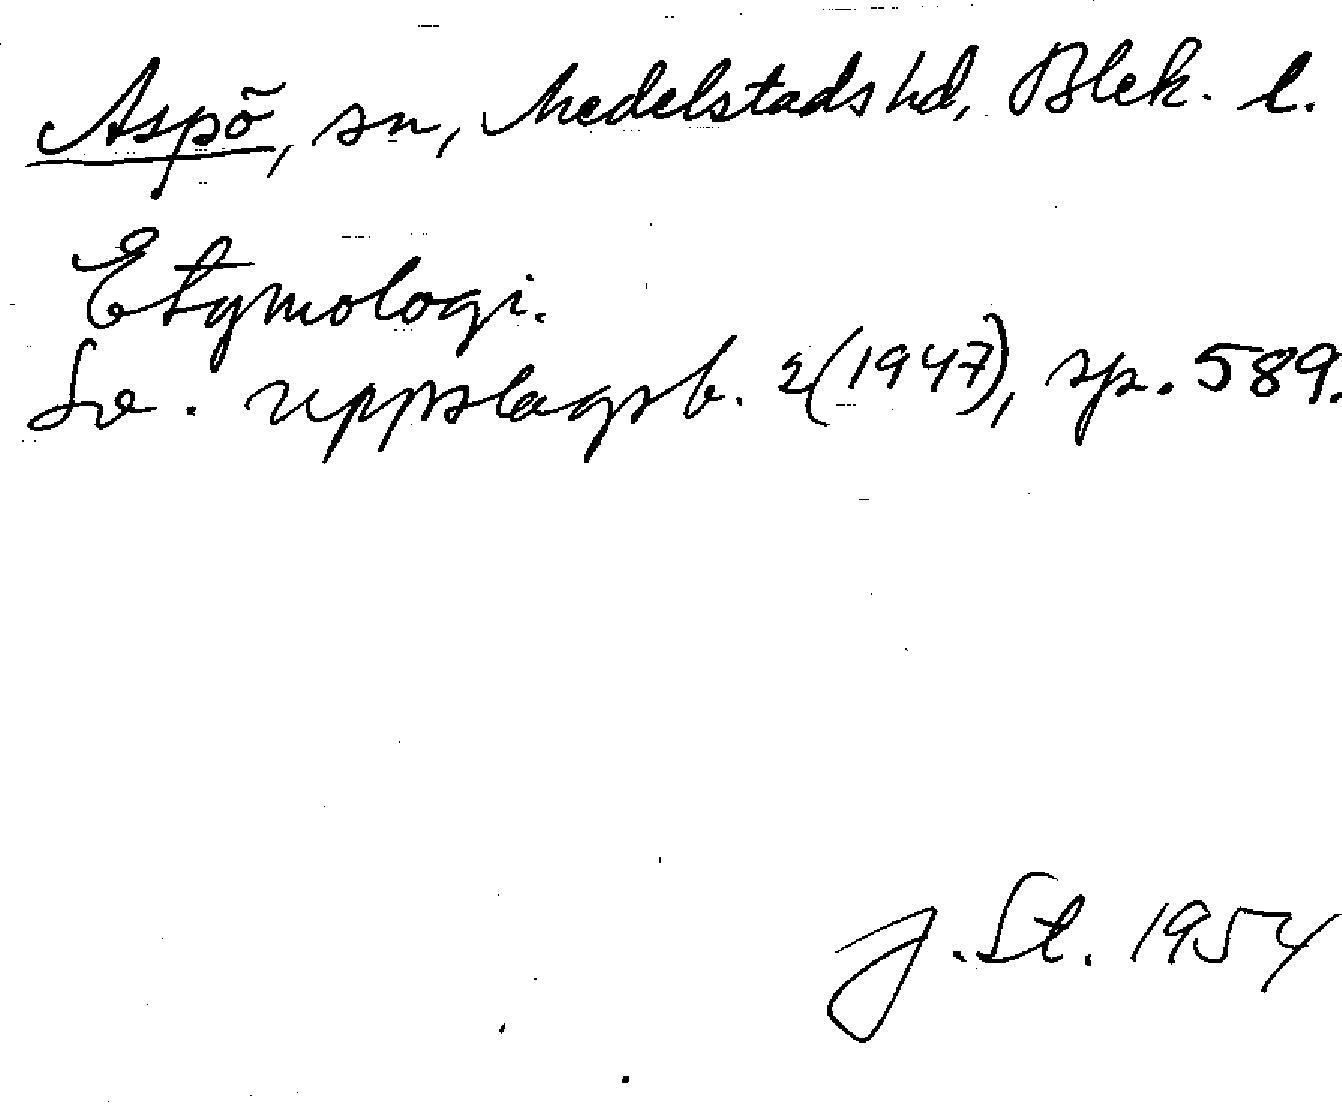 Aspö, sn, Medelstads hd, Blek. l.
Etymologi.
Sv. uppslagsb. 2(1947), sp. 589.
J. St. 1954